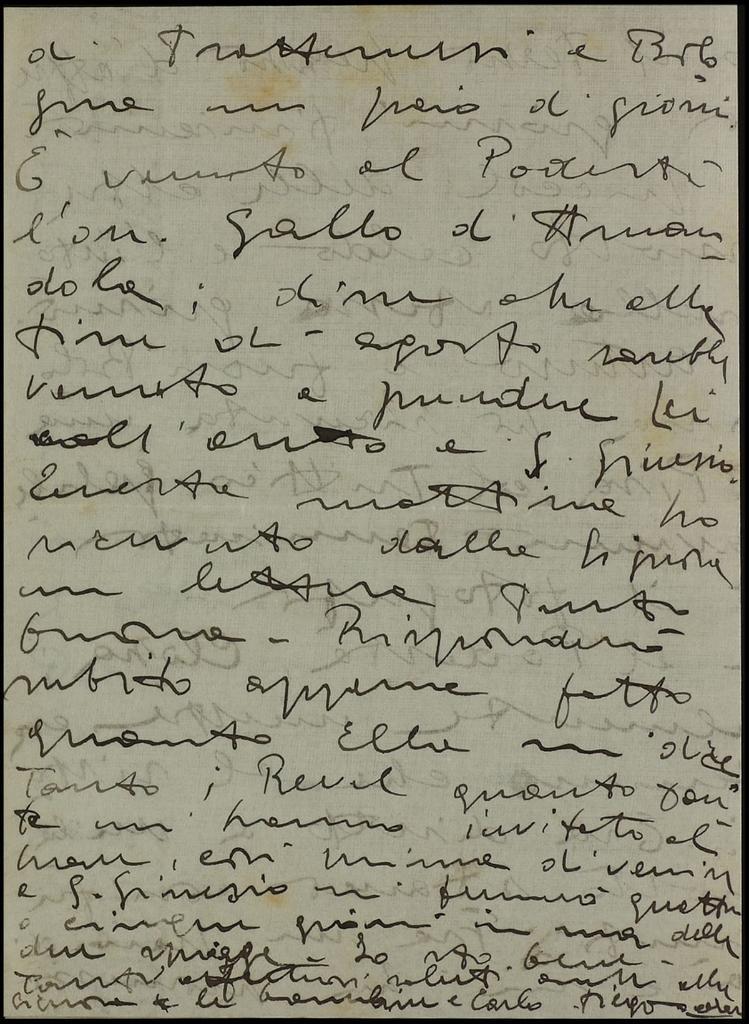 di Trattenersi a Bolo
gna un paio di giorni.
È venuto al Podestà
l'on. Gallo d'Aman
dola; dire che alla
fine di agosto sarebbe
venuto a prendere Lei
coll'auto a S. Ginesio.
Questa mattina ho
ricevuto dalla Signora
una lettera tanto
buona - Risponderò
subito appena fatto
quanto Ella mi dice
Tanto i Revel quanto
mi hanno invitato al
mare, così prima di venire
a S. Ginesio mi fermerò quattro
o cinque giorni in una delle
due spiagge - Io sto bene -
Tanti affettuosi saluti anche alla
Signora e le bambine e Carlo